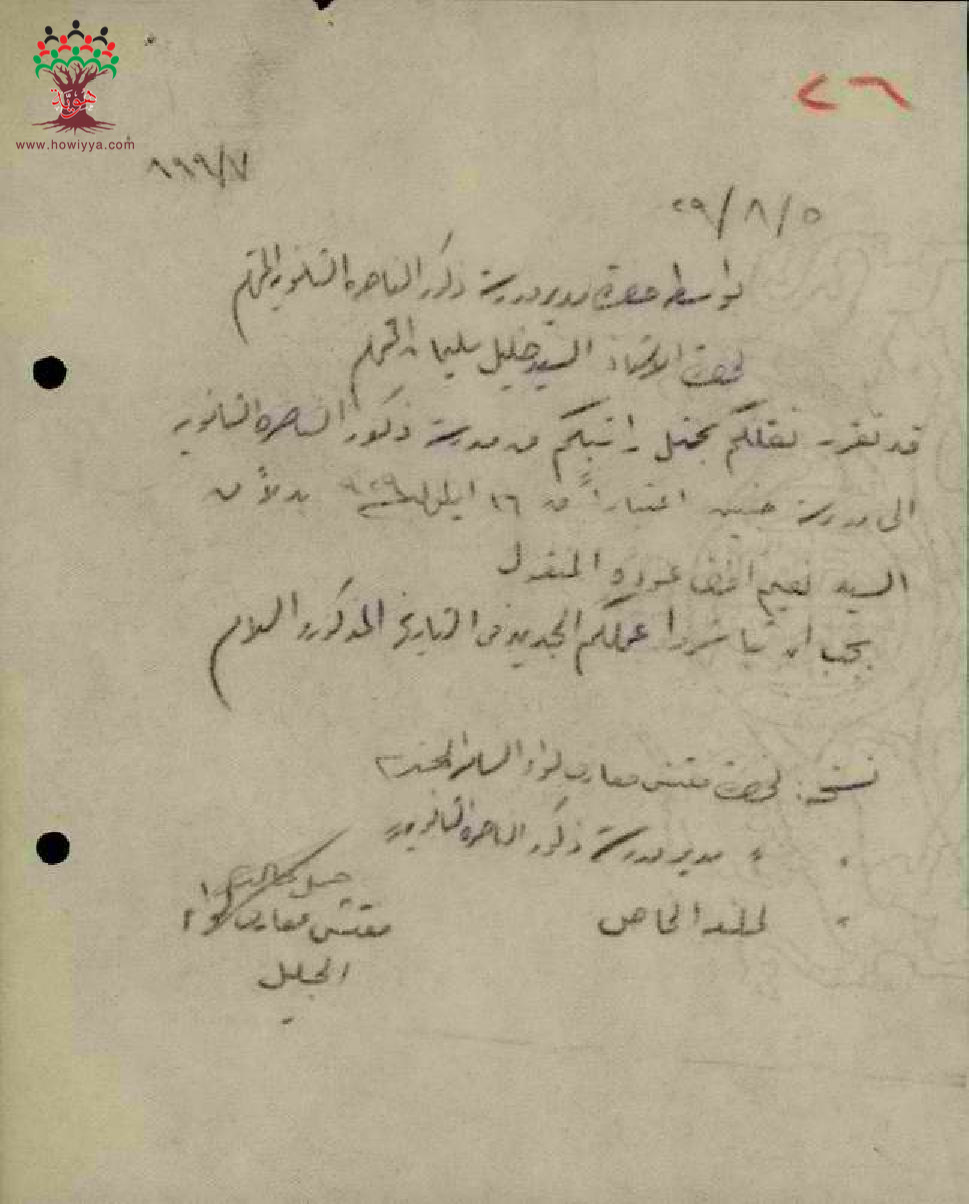 هوية
www.howiyya.com
٢٦
٨٩٩/٧
٢٩/٨/٥
بواسطة حضرة مدير مدرسة ذكور الناصرة الثانوية المحترم
لحضرة الاستاذ السيد خليل سليمان المحترم
قد تقرر نقلكم بمثل راتبكم من مدرسة ذكور الناصرة الثانوية
الى مدرسة جنين اعتباراً من ١٦ ايلول سنة ٩٢٩ بدلاً من
السيد نعيم افندي عودة المنقول
يجب ان تباشروا عملكم الجديد من التاريخ المذكور والسلام
نسخة: لحضرة مفتش معارف لواء السامرة المحترم
" " مدير مدرسة ذكور الناصرة الثانوية
" لملفه الخاص
مفتش معارف لواء
الجليل